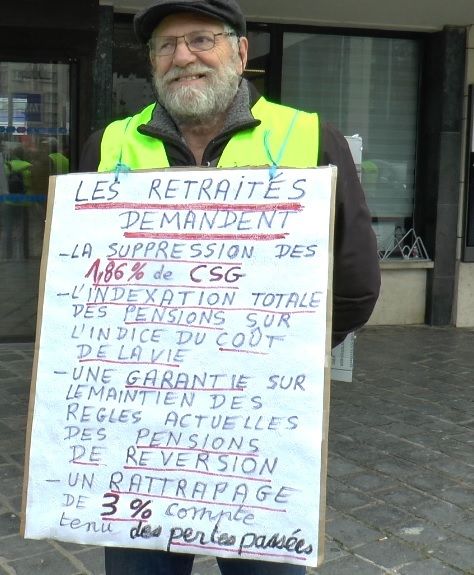 LES RETRAiTÉS
DEMANDENT
- LA SUPPRESSION DES
1,86% de CSG
- L'INDEXATION TOTALE
DES PENSIONS SUR
L'INDICE DU COÛT
DE LA VIE
- UNE GARANTIE SUR
LE MAINTIEN DES
REGLES ACTUELLES
DES PENSIONS
DE REVERSION
- UN RATTRAPAGE
DE 3% compte
tenu des pertes passées